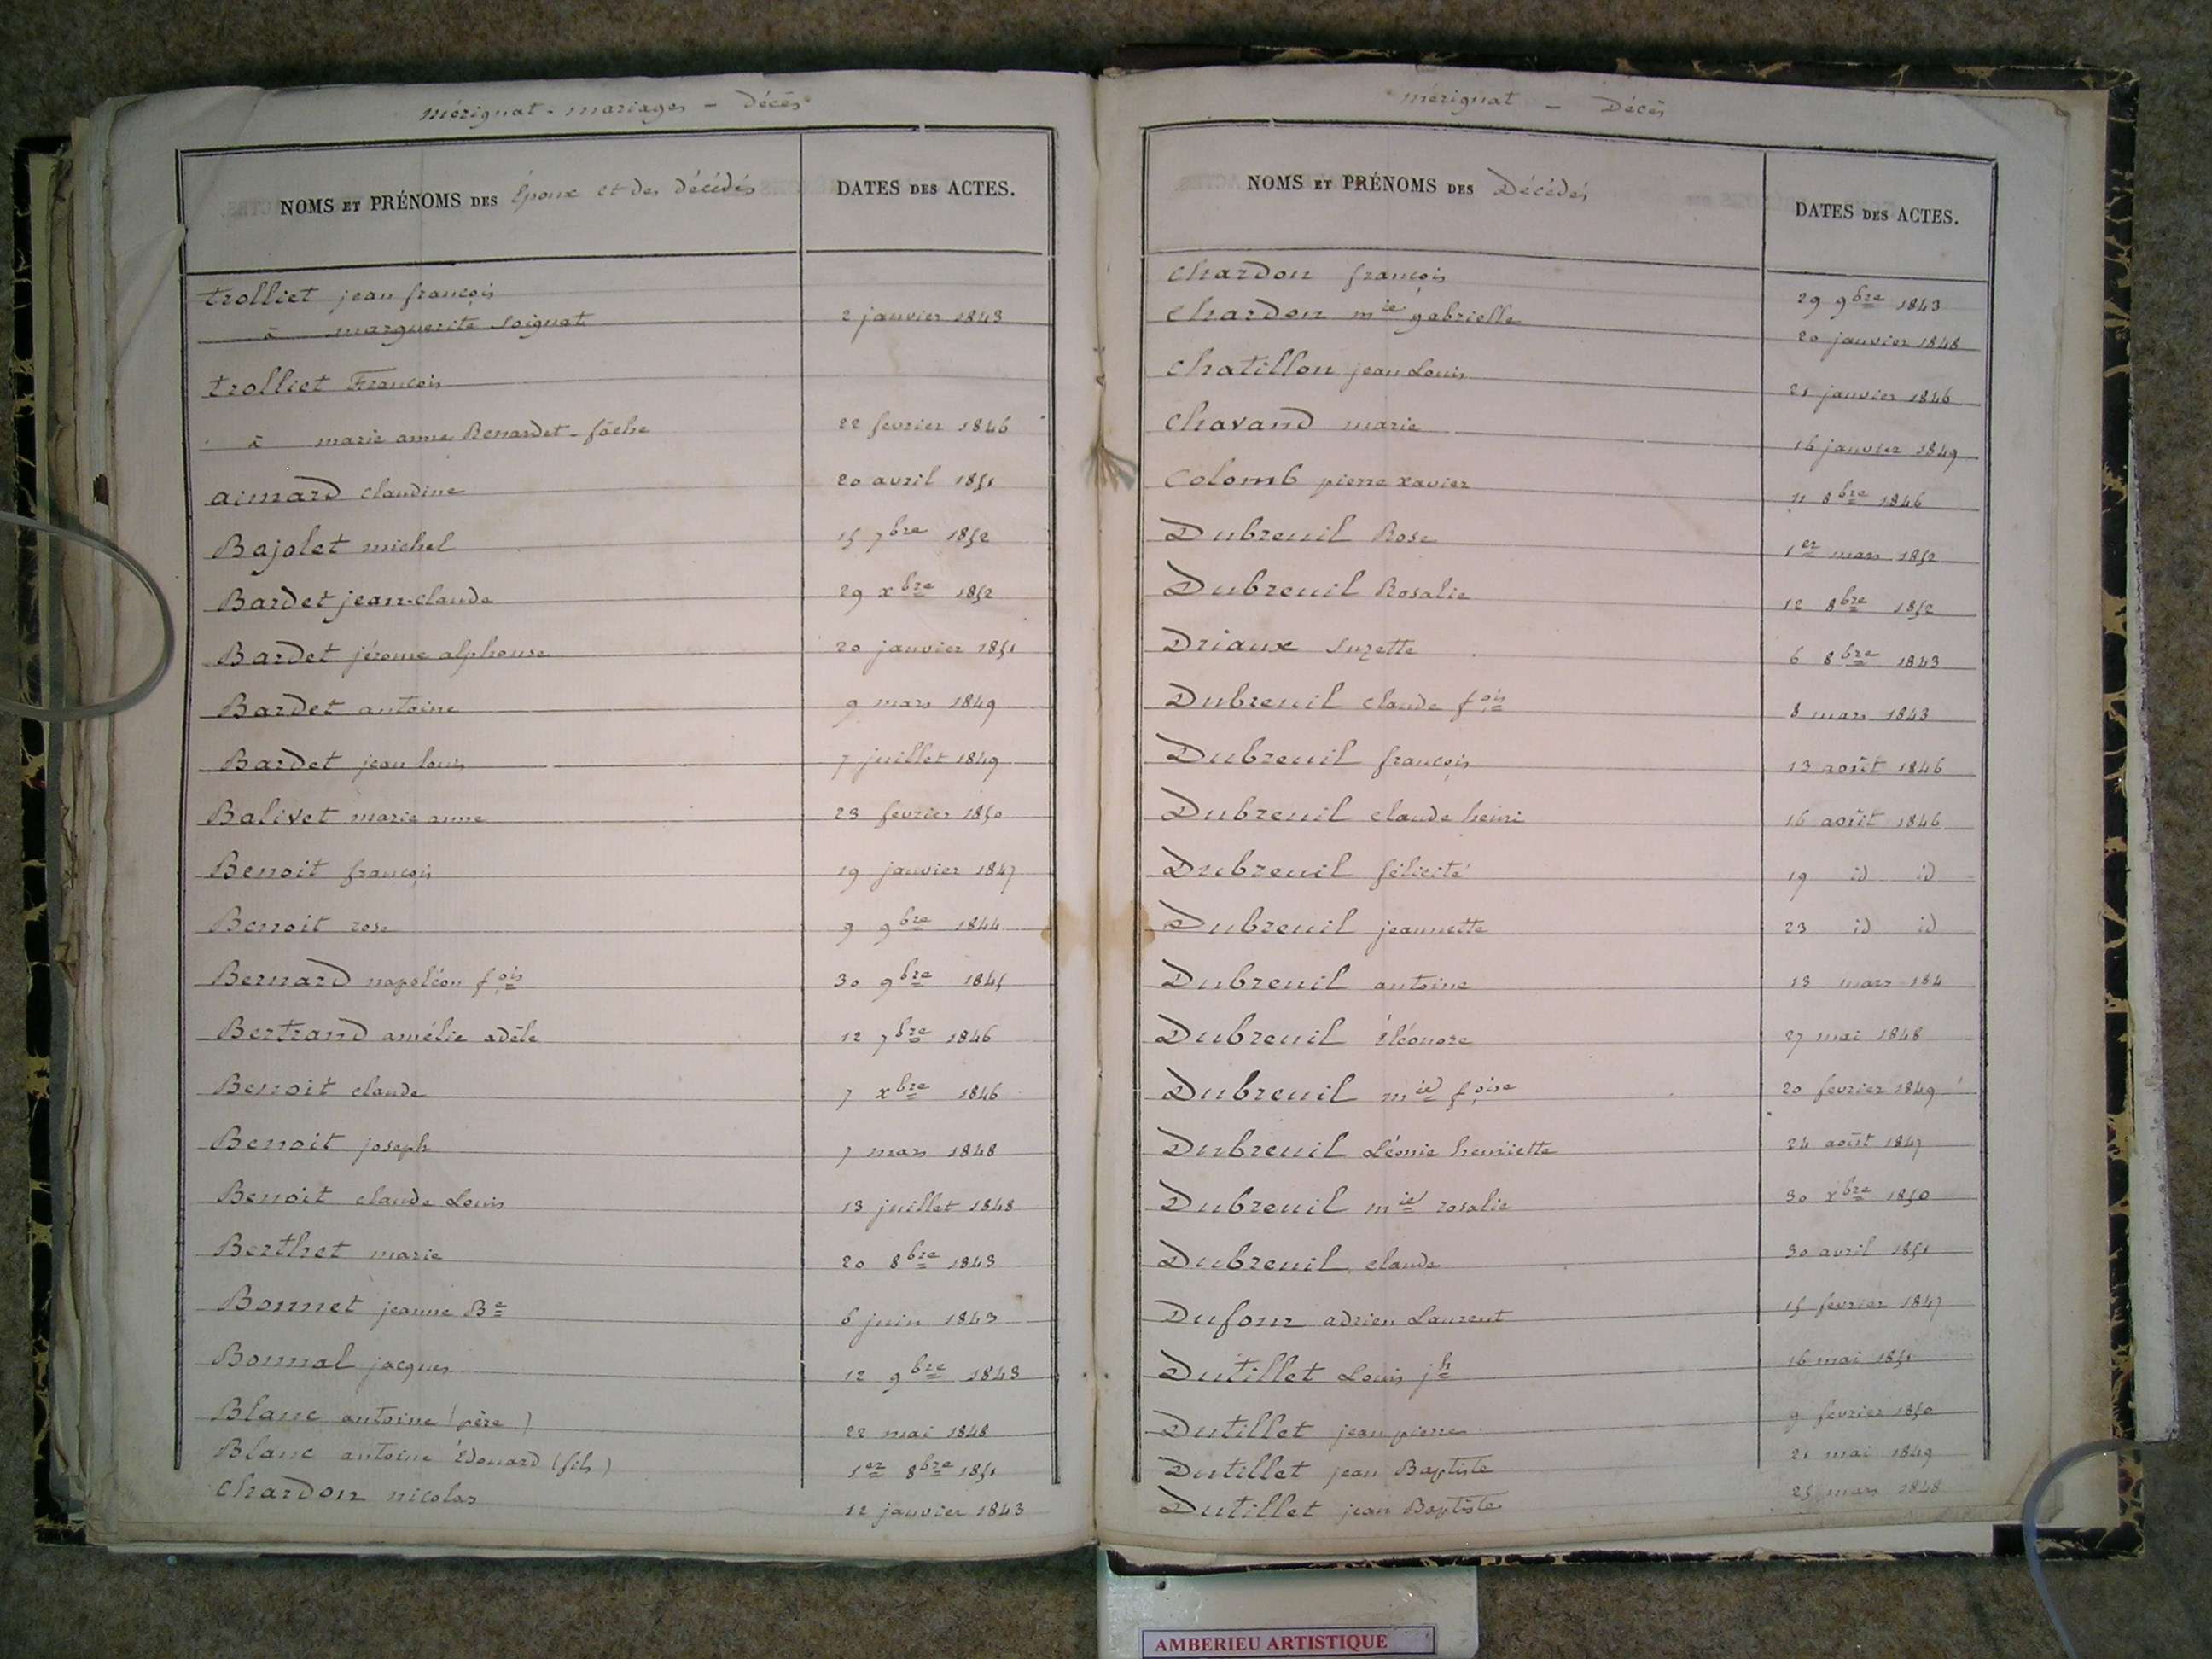 Mérignat - mariages - Décès
NOMS ET PRÉNOMS DES Époux et des décédés DATES DES ACTES.
trolliet jean françois
à marguerite Soignat 2 janvier 1843
trolliet François
à marie anne Benardet-fâche 22 fevrier 1846
aimard claudine 20 avril 1851
Bajolet michel 15 7bre 1852
Bardet jean-claude 29 xbre 1852
Bardet jérome alphonse 20 janvier 1851
Bardet antoine 9 mars 1849
Bardet jean louis 7 juillet 1849
Balivet marie anne 23 fevrier 1850
Benoit françois 19 janvier 1847
Benoit rose 9 9bre 1844
Bernard napoléon fois 30 9bre 1845
Bertrand amélie adèle 12 7bre 1846
Benoit claude 7 xbre 1846
Benoit joseph 7 mars 1848
Benoit claude Louis 13 juillet 1848
Berthet marie 20 8bre 1843
Bonnet jeanne Bte 6 juin 1843
Bonnal jacques 12 9bre 1843
Blanc antoine (père) 22 mai 1848
Blanc antoine Édouard (fils) 1er 8bre 1851
Chardon nicolas 12 janvier 1843
Mérignat - Décès
NOMS ET PRÉNOMS DES Décédés DATES DES ACTES.
Chardon françois 29 9bre 1843
Chardon mie gabrielle 20 janvier 1848
Chatillon jean Louis 21 janvier 1846
Chavand marie 16 janvier 1849
Colomb pierre xavier 11 8bre 1846
Dubreuil Rose 1er mars 1852
Dubreuil Rosalie 12 8bre 1852
Driaux Suzette 6 8bre 1843
Dubreuil claude fois 8 mars 1843
Dubreuil françois 13 août 1846
Dubreuil claude henri 16 août 1846
Dubreuil félicité 19 id id
Dubreuil jeannette 23 id id
Dubreuil antoine 13 mars 184
Dubreuil Éléonore 27 mai 1848
Dubreuil mie foise 20 fevrier 1849
Dubreuil Léonie henriette 24 août 1847
Dubreuil mie rosalie 30 xbre 1850
Dubreuil claude 30 avril 1851
Dufour adrien Laurent 15 fevrier 1847
Dutillet Louis jh 16 mai 1851
Dutillet jean pierre 9 fevrier 1850
Dutillet jean Baptiste 21 mai 1849
Dutillet jean Baptiste 25 mars 1848
AMBERIEU ARTISTIQUE